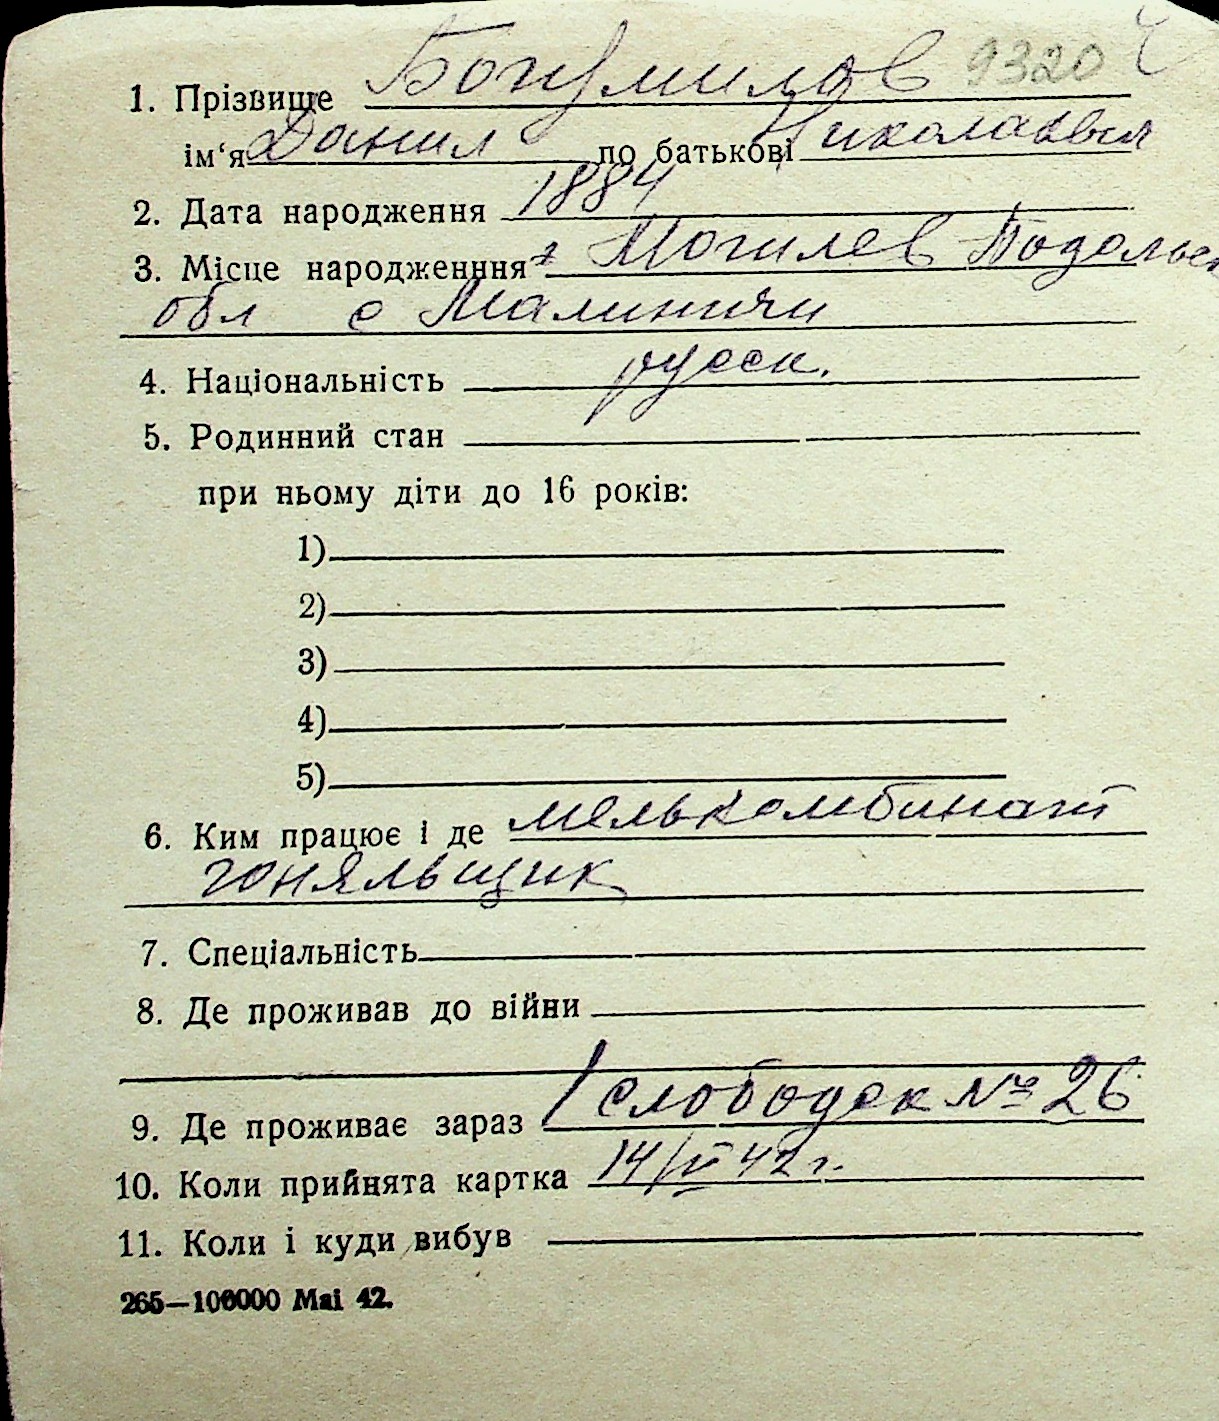 1. Прізвище Богумилов 9320
ім‘я Данил по батькові Николаевич
2. Дата народження 1884
3. Місце народженння г Могилев Подольск
обл с Малиничи
4. Національність русск.
5. Родинний стан
при ньому діти до 16 років:
1)
2)
3)
4)
5)
6. Ким працює і де мелькомбинат
гоняльщик
7. Спеціальність
8. Де проживав до війни
9. Де проживає зараз слободск № 26
10. Коли прийнята картка 42 г.
11. Коли і куди вибув
265—100000 Mai 42.